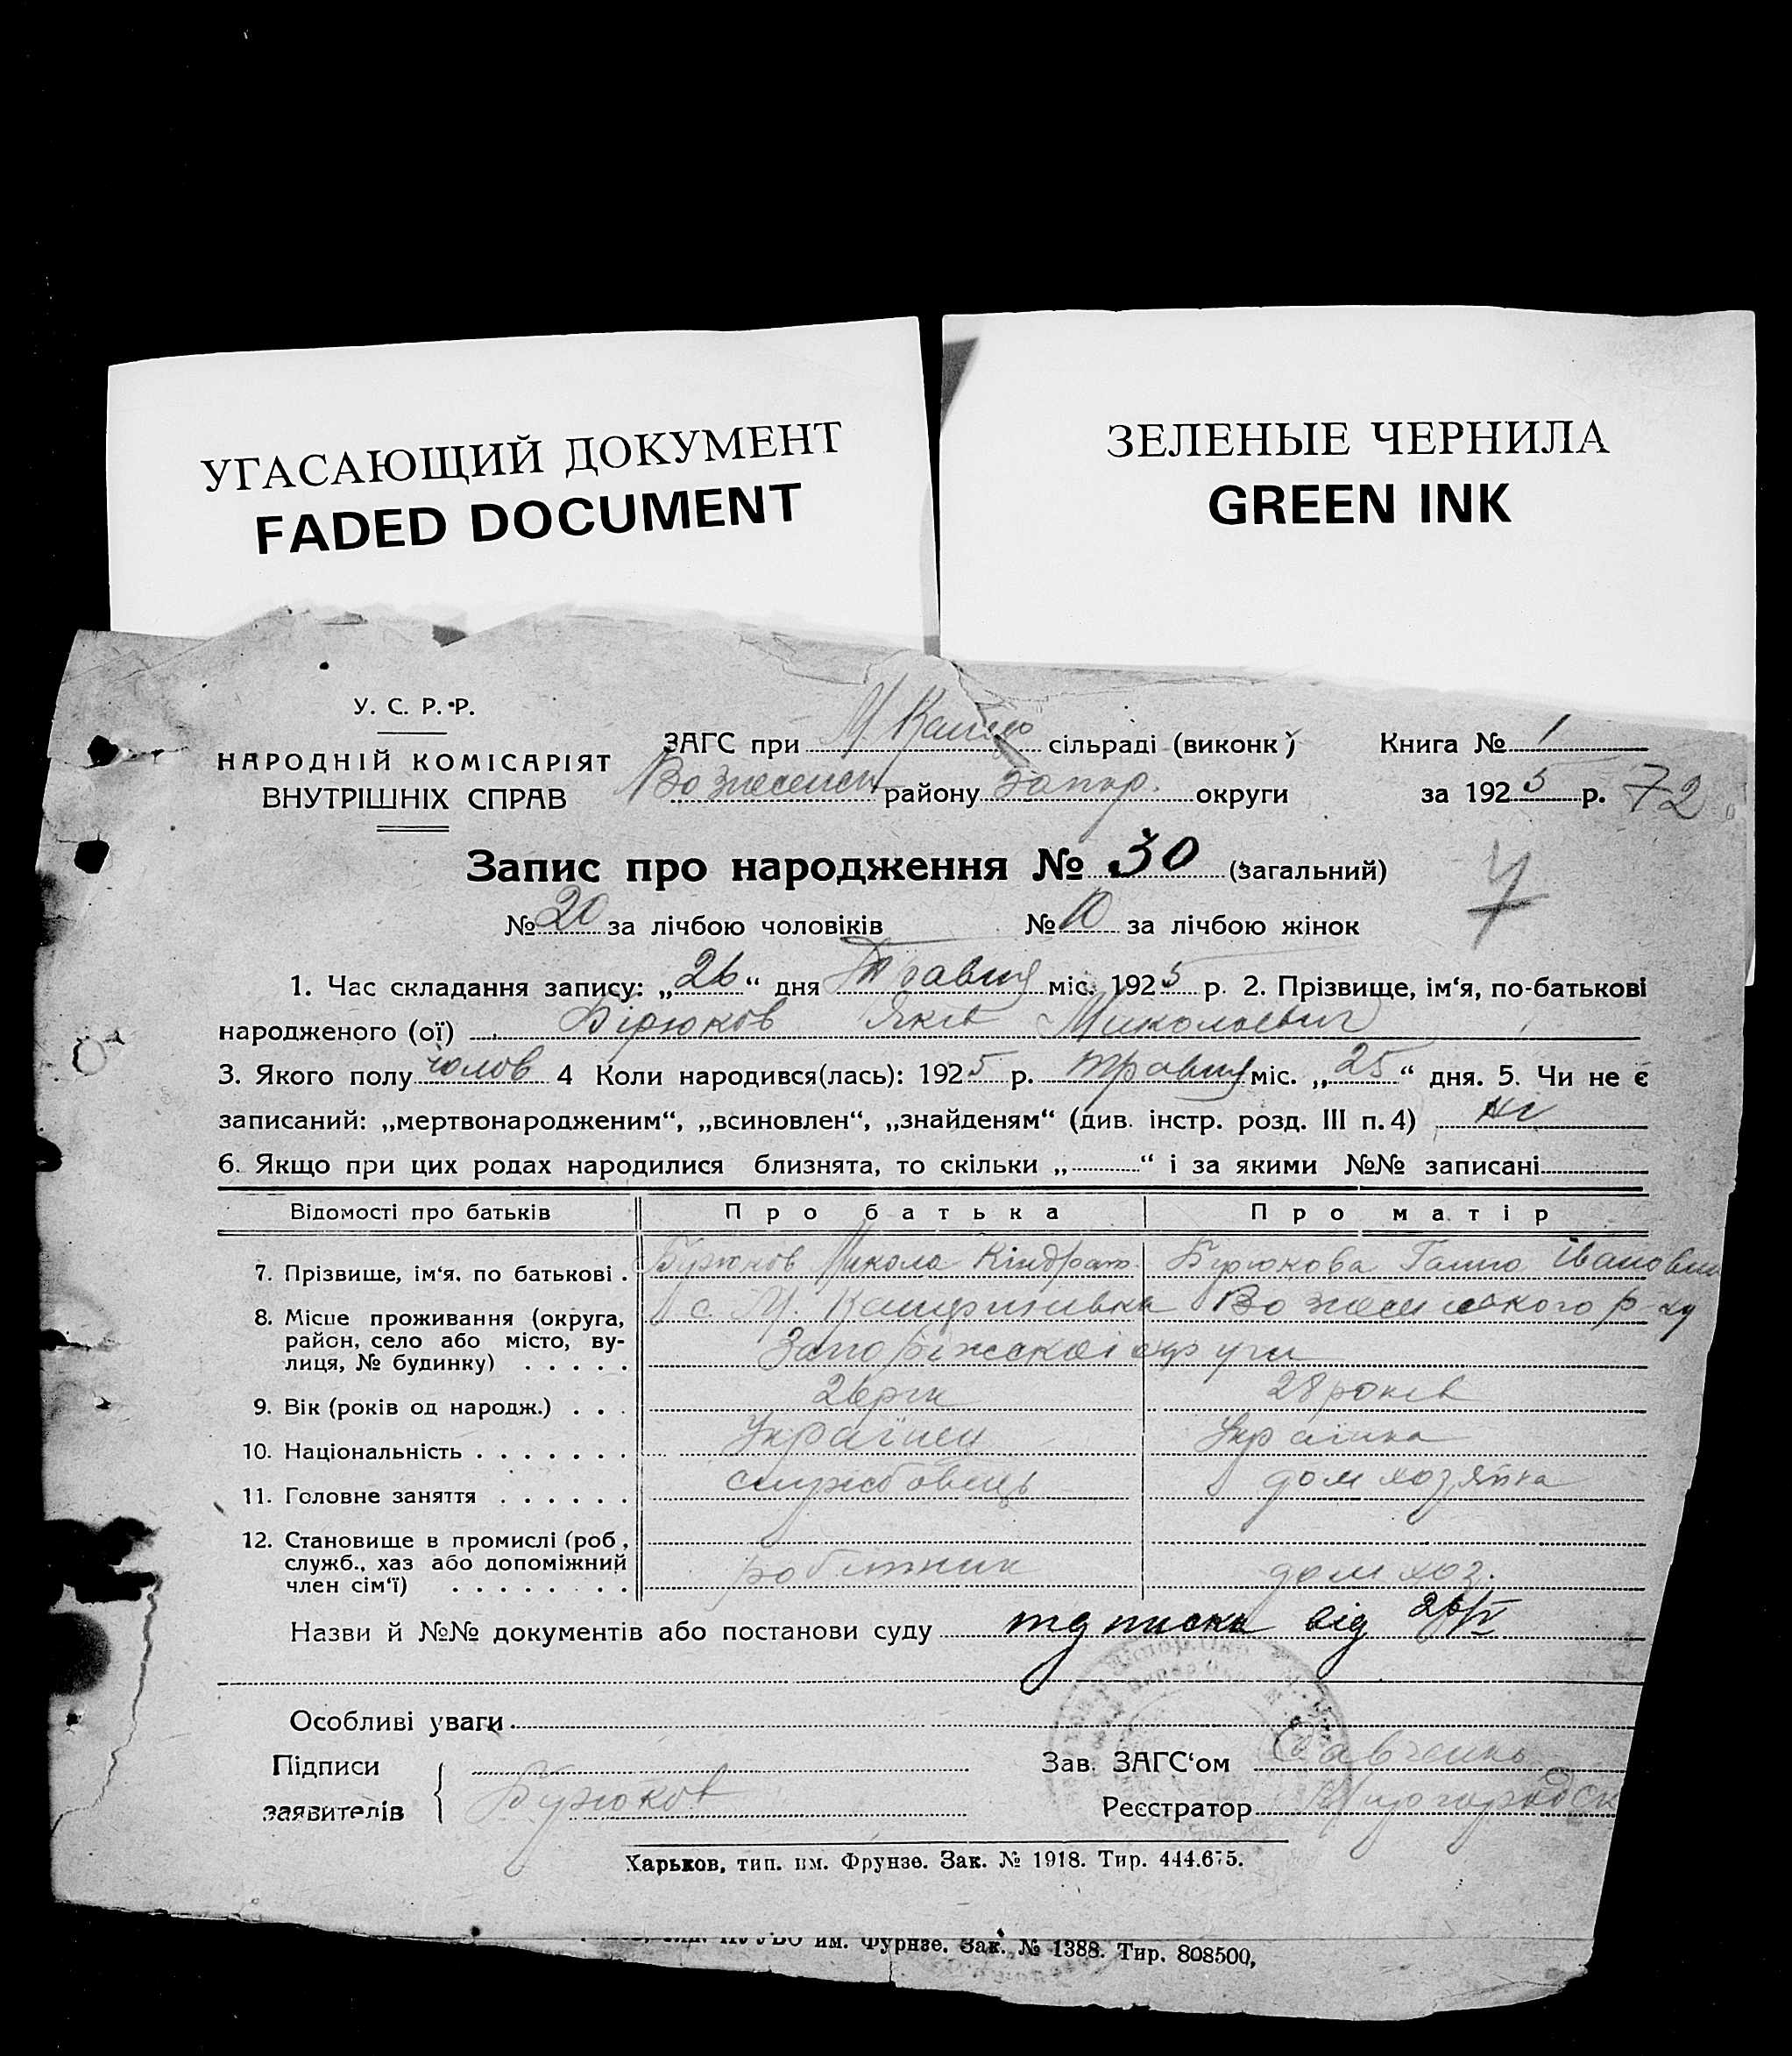 УГАСАЮЩИЙ ДОКУМЕНТ
FADED DOCUMENT
ЗЕЛЕНЫЕ ЧЕРНИЛА
GREEN INK
У. С. Р. Р.
НАРОДНІЙ КОМІСАРІЯТ
ВНУТРІШНІХ СПРАВ
ЗАГС при М Кат сільраді (виконк)
Вознесенск району Запор. округи
Книга № 1
за 1925 р. 72
Запис про народження № 30 (загальний)
4
№ 20 за лічбою чоловіків № 10 за лічбою жінок
1. Час складання запису: „26“ дня Травня міс. 1925 р. 2. Прізвище, ім‘я, по-батькові
народженого (ої) Бірюков Яків Миколаєвич
3. Якого полу чолов 4 Коли народився(лась): 1925 р. травня міс. „25“ дня. 5. Чи не є
записаний: „мертвонародженим“, „всиновлен“, „знайденям“ (див. інстр. розд. III п. 4) ні
6. Якщо при цих родах народилися близнята, то скільки „ “ і за якими №№ записані
Відомості про батьків Про батька Про матір
7. Прізвище, ім‘я, по батькові . Бірюков Микола Кіндрат. Бірюкова Ганна Івановна
8. Місце проживання (округа, с. М. Катеринівка Вознесенського р-ну
район, село або місто, ву-
лиця, № будинку) . . . . . Запоріжської округи
9. Вік (років од народж.) . . . 26 рік 28 років
10. Національність . . . . . . . Українец Українка
11. Головне заняття . . . . . . службовець дом хозяйка
12. Становище в промислі (роб.,
служб., хаз або допоміжний робітник дом хоз.
член сім‘ї) . . . . . . .
Назви й №№ документів або постанови суду підписка від 26/V
Особливі уваги
Підписи Зав. ЗАГС‘ом Савченко
заявителів Бірюков Реєстратор
Харьков, тип. им. Фрунзе. Зак. № 1918. Тир. 444.675.
им. Фурнзе. Зак. № 1388. Тир. 808500,